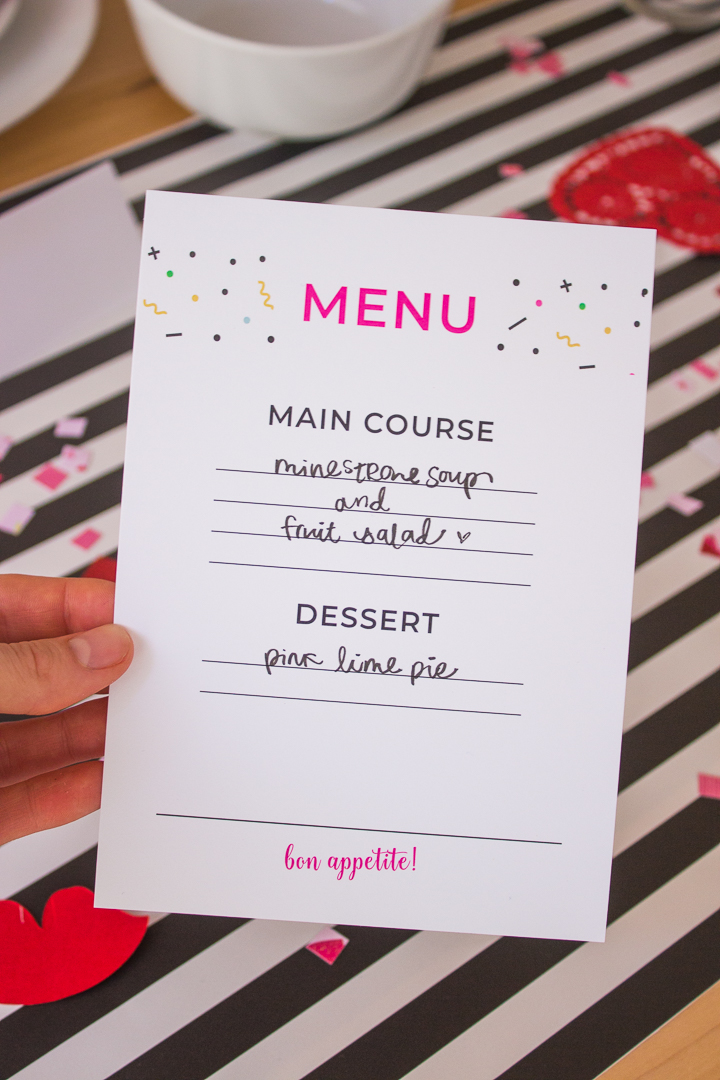 MENU
MAIN COURSE
minestrone soup
and
fruit salad
DESSERT
pink lime pie
bon appetite!